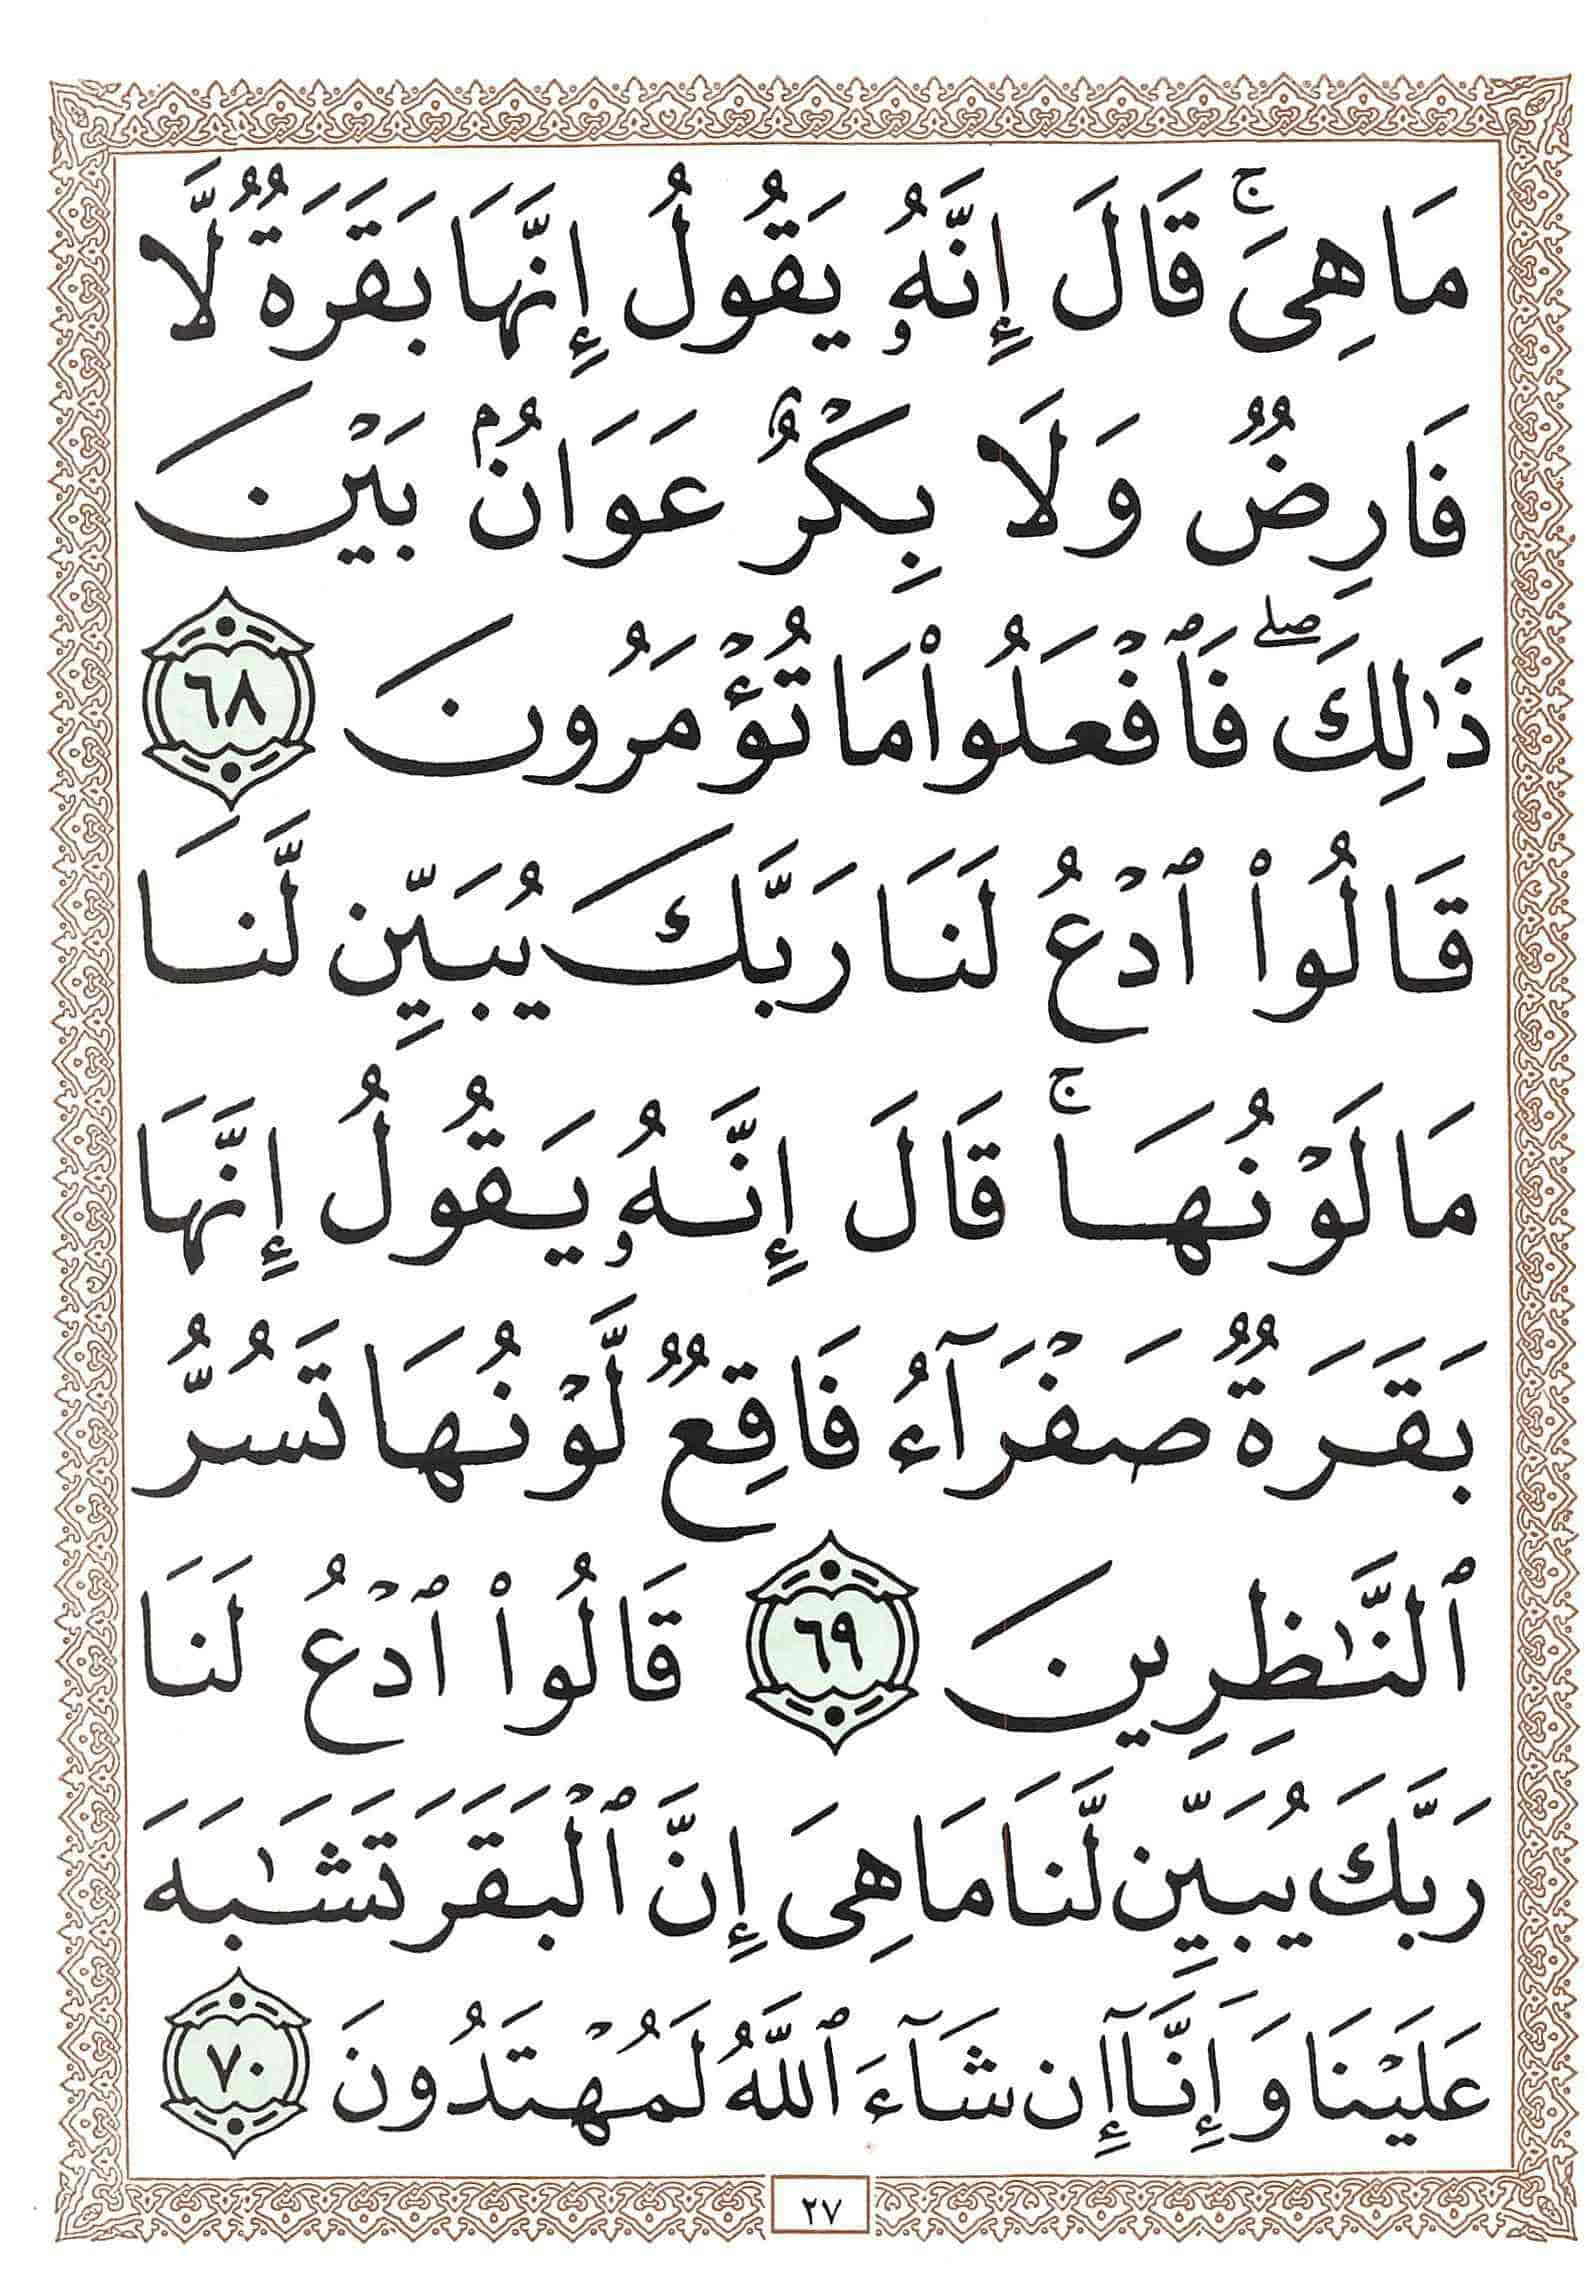 مَا هِىَ ۚ قَالَ إِنَّهُۥ يَقُولُ إِنَّهَا بَقَرَةٌ لَّا
فَارِضٌ وَلَا بِكْرٌ عَوَانٌۢ بَيْنَ
ذَٰلِكَ ۖ فَٱفْعَلُوا۟ مَا تُؤْمَرُونَ ٦٨
قَالُوا۟ ٱدْعُ لَنَا رَبَّكَ يُبَيِّن لَّنَا
مَا لَوْنُهَا ۚ قَالَ إِنَّهُۥ يَقُولُ إِنَّهَا
بَقَرَةٌ صَفْرَآءُ فَاقِعٌ لَّوْنُهَا تَسُرُّ
ٱلنَّـٰظِرِينَ ٦٩ قَالُوا۟ ٱدْعُ لَنَا
رَبَّكَ يُبَيِّن لَّنَا مَا هِىَ إِنَّ ٱلْبَقَرَ تَشَـٰبَهَ
عَلَيْنَا وَإِنَّآ إِن شَآءَ ٱللَّهُ لَمُهْتَدُونَ ٧٠
٢٧